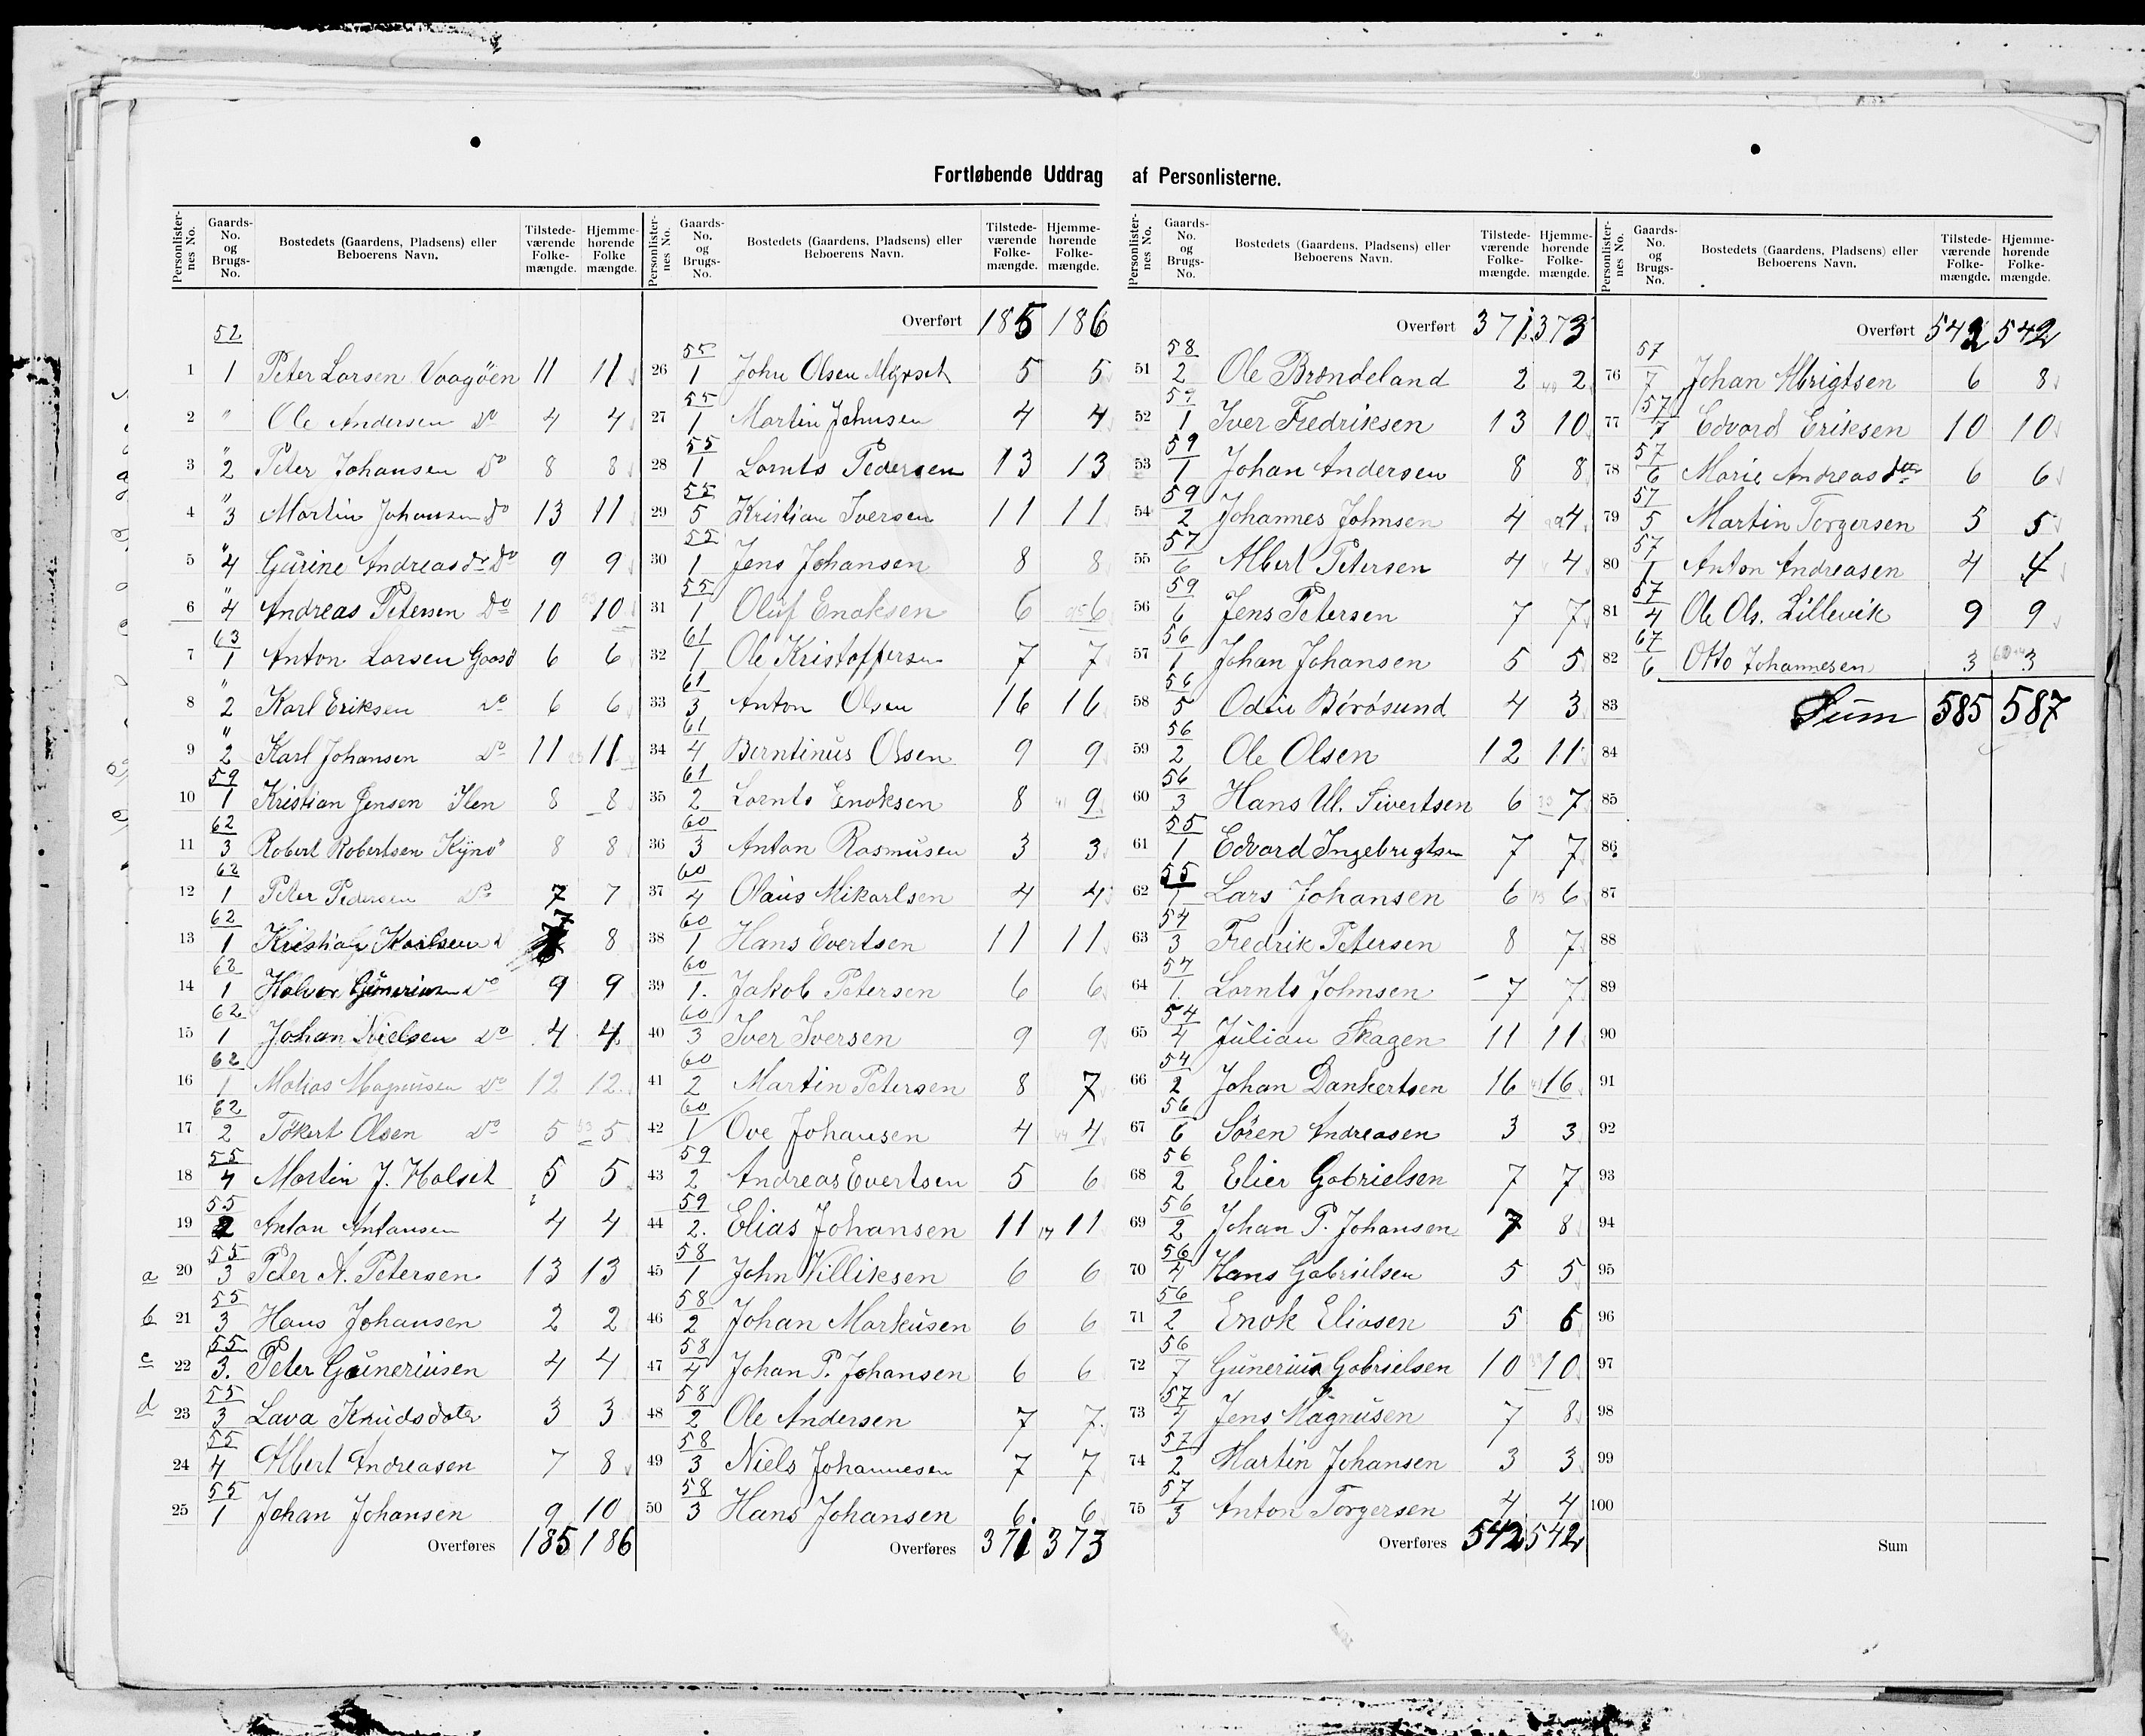 Fortløbende Uddrag af Personlisterne.
Personlisternes No. Gaards-No. og Brugs-No. Bostedets (Gaardens, Pladsens) eller Beboerens Navn. Tilstedeværende Folkemængde. Hjemmehørende Folke mængde.
52
1 1 Peter Larsen Vaagöen 11 11
2 " Ole Andersen Do 4 4
3 " 2 Peter Johansen Do 8 8
4 " 3 Martin Johansen Do 13 11
5 " 4 Gurine Andreasdr Do 9 9
6 " 4 Andreas Petersen Do 10 10
7 63 1 Anton Larsen Gaasö 6 6
8 " 2 Karl Eriksen Do 6 6
9 " 2 Karl Johansen Do 11 11
10 59 1 Kristian Jensen Ilen 8 8
11 62 3 Robert Robertsen Kjnö 8 8
12 62 1 Peter Pedersen Do 7 7
13 62 1 Kristian Karlsen 7 8
14 62 1 Halvor Do 9 9
15 62 1 Johan Nielsen Do 4 4
16 62 1 Matias Magnusen Do 12 12
17 62 2 Tökert Olsen Do 5 5
18 55 4 Martin J. Halset 5 5
19 55 2 Anton Antonsen 4 4
a 20 55 3 Peter A. Petersen 13 13
b 21 55 3 Hans Johansen 2 2
c 22 55 3. Peter Guneriusen 4 4
d 23 55 3 Lava Knudsdater 3 3
24 55 4 Albert Andreasen 7 8
25 55 1 Johan Johansen 9 10
Overføres 185 186
Personlisternes No. Gaards-No. og Brugs-No. Bostedets (Gaardens, Pladsens) eller Beboerens Navn. Tilstedeværende Folkemængde. Hjemmehørende Folkemængde.
Overført 185 186
26 55 1 John Olsen Myrset 5 5
27 55 1 Martin Johnsen 4 4
28 55 1 Lornts Pedersen 13 13
29 55 5 Kristian Iversen 11 11
30 55 1 Jens Johansen 8 8
31 55 1 Oluf Enoksen 6 6
32 61 1 Ole Kristoffersen 7 7
33 61 3 Anton Olsen 16 16
34 61 4 Berntinus Olsen 9 9
35 61 2 Lornts Enoksen 8 9
36 60 3 Anton Rasmusen 3 3
37 60 4 Olaus Mikarlsen 4 4
38 60 1 Hans Evertsen 11 11
39 60 1. Jakob Petersen 6 6
40 60 3 Iver Iversen 9 9
41 60 2 Martin Petersen 8 7
42 60 1 Ove Johansen 4 4
43 59 2 Andreas Evertsen 5 6
44 59 2. Elias Johansen 11 11
45 58 1 John Villiksen 6 6
46 58 2 Johan Markusen 6 6
47 58 4 Johan P. Johansen 6 6
48 58 2 Ole Andersen 7 7
49 58 3 Niels Johannesen 7 7
50 58 3 Hans Johansen 6 6
Overføres 371 373
Personlisternes No. Gaards-No. og Brugs-No. Bostedets (Gaardens, Pladsens) eller Beboerens Navn. Tilstedeværende Folkemængde. Hjemmehørende Folkemængde.
Overført 371 373
51 58 2 Ole Brøndeland 2 2
52 59 1 Iver Fredriksen 13 10
53 59 1 Johan Andersen 8 8
54 59 2 Johannes Johnsen 4 4
55 57 6 Albert Petersen 4 4
56 59 6 Jens Petersen 7 7
57 56 1 Johan Johansen 5 5
58 56 5 Odin Börösund 4 3
59 56 2 Ole Olsen 12 11
60 56 3 Hans Ul. Sivertsen 6 7
61 55 1 Edvard Ingebrigtsen 7 7
62 55 1 Lars Johansen 6 6
63 54 3 Fredrik Petersen 8 7
64 54 1. Lornts Johnsen 7 7
65 54 4 Julian Skagen 11 11
66 54 2 Johan Dankertsen 16 16
67 56 6 Sören Andreasen 3 3
68 56 2 Elier Gabrielsen 7 7
69 56 2 Johan P. Johansen 7 8
70 56 4 Hans Gabrielsen 5 5
71 56 2 Enok Eliasen 5 6
72 56 7 Gunerius Gabrielsen 10 10
73 57 4 Jens Magnusen 7 8
74 57 2 Martin Johansen 3 3
75 57 3 Anton Torgersen 4 4
Overføres 542 542
Personlisternes No. Gaards-No. og Brugs-No. Bostedets (Gaardens, Pladsens) eller Beboerens Navn. Tilstedeværende Folkemængde. Hjemmehørende Folkemængde.
Overført 542 542
76 57 7 Johan Albrigtsen 6 8
77 57 7 Edvard Eriksen 10 10
78 57 6 Marie Andreasdtr 6 6
79 57 5 Martin Torgersen 5 5
80 57 1 Anton Andreasen 4 4
81 57 4 Ole Ols. Lillevik 9 9
82 67 6 Otto Johannesen 3 3
83 Sum 585 587
84
85
86
87
88
89
90
91
92
93
94
95
96
97
98
99
100
Sum